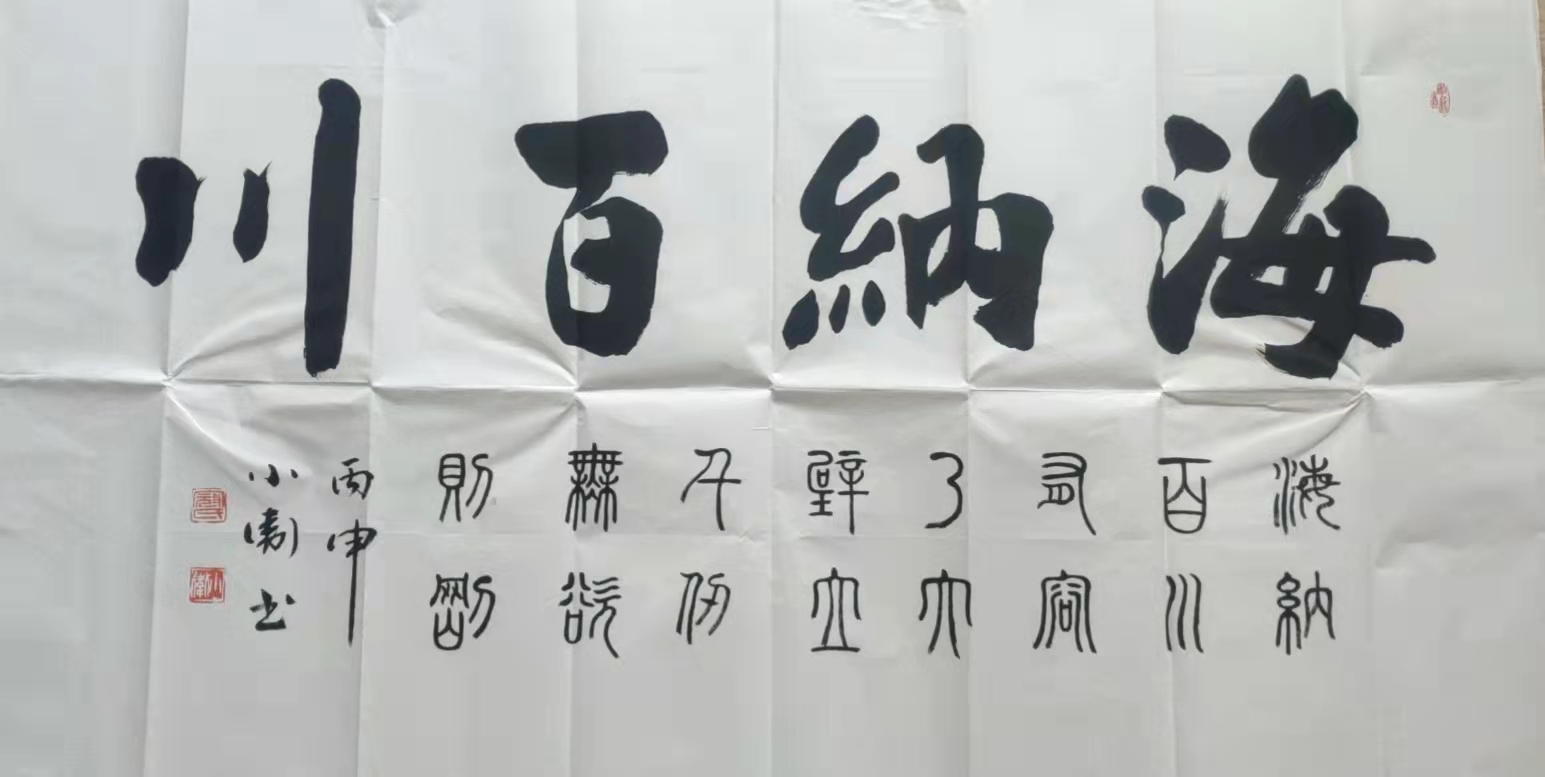 海納百川
海納
百川
有容
乃大
壁立
千仞
無欲
則剛
丙申
小衛书